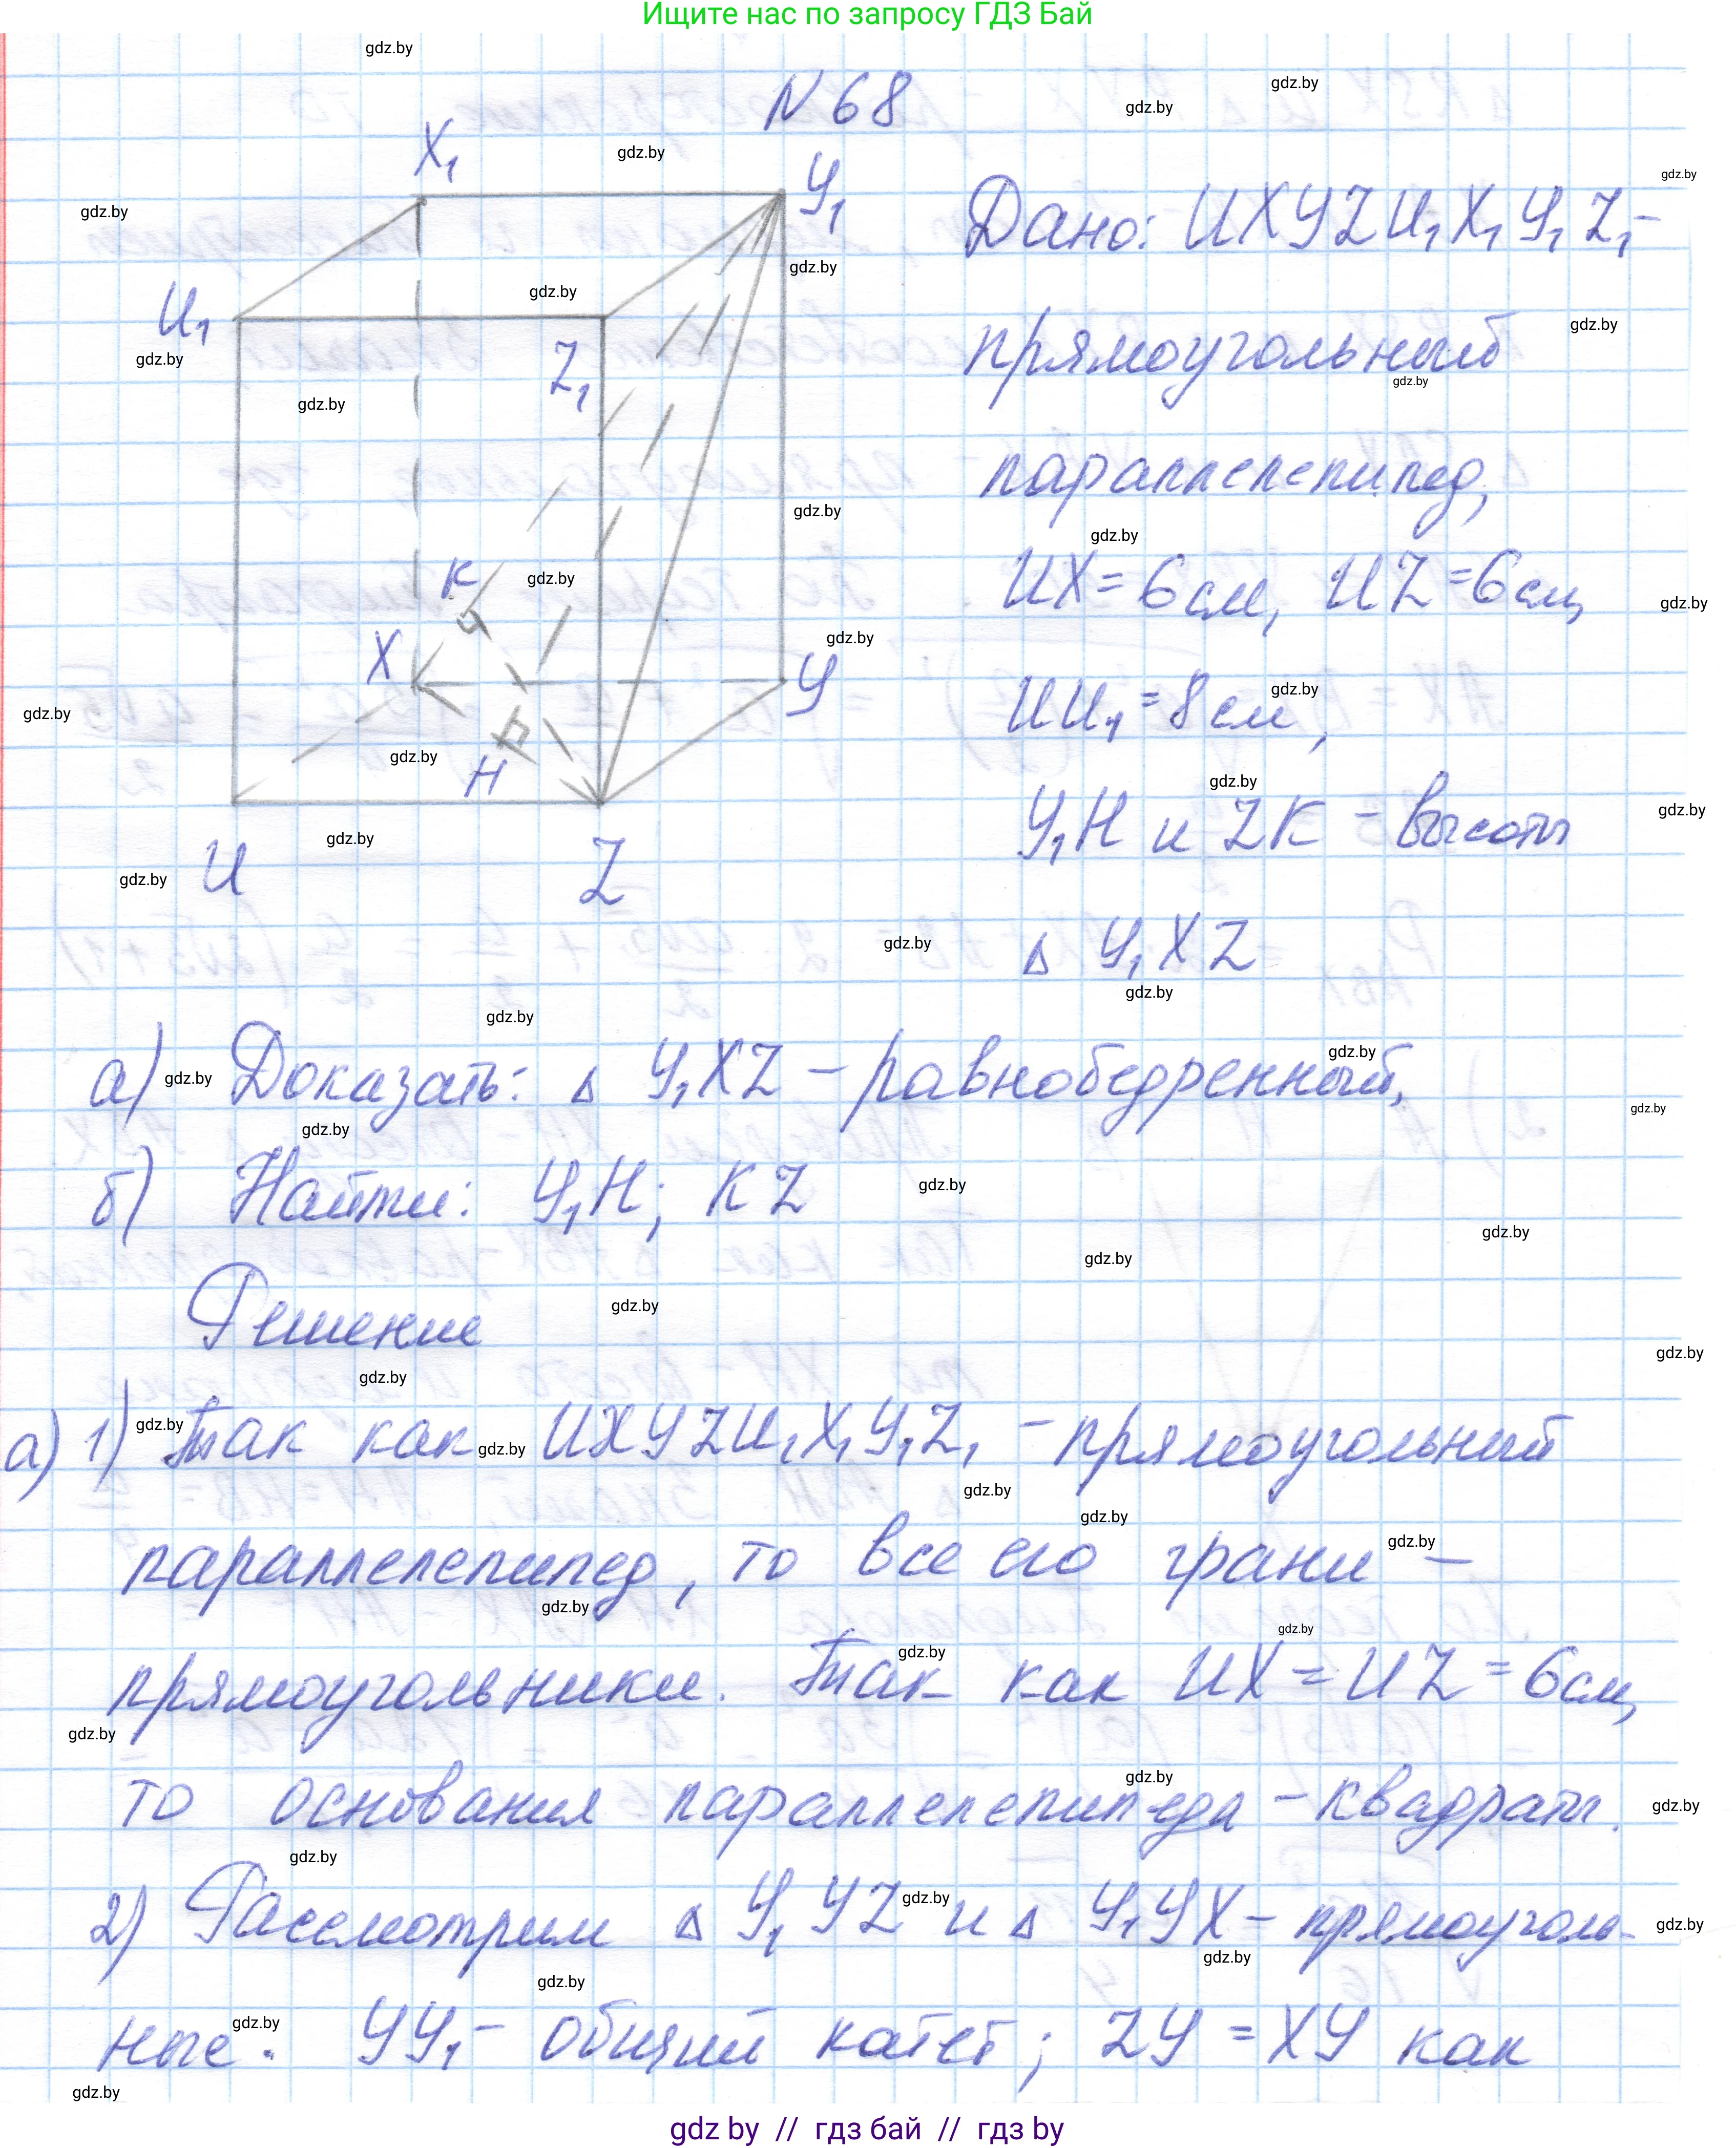 Ищите нас по запросу ГДЗ Бай
N 68
X₁
У₁
U₁
Z₁
K
X
У
H
U
Z
Дано: UXУZU₁X₁У₁Z₁ –
прямоугольный
параллелепипед,
UX = 6 см, UZ = 6 см,
UU₁ = 8 см,
У₁H и ZK – высоты
Δ У₁XZ
а) Доказать: Δ У₁XZ – равнобедренный,
б) Найти: У₁H; KZ
Решение
а) 1) Так как UXУZU₁X₁У₁Z₁ – прямоугольный
параллелепипед, то все его грани –
прямоугольники. Так как UX = UZ = 6 см,
то основания параллелепипеда – квадраты.
2) Рассмотрим Δ У₁УZ и Δ У₁УX – прямоуголь-
ные. УУ₁ – общий катет; ZУ = XУ как
gdz by // гдз бай // гдз by